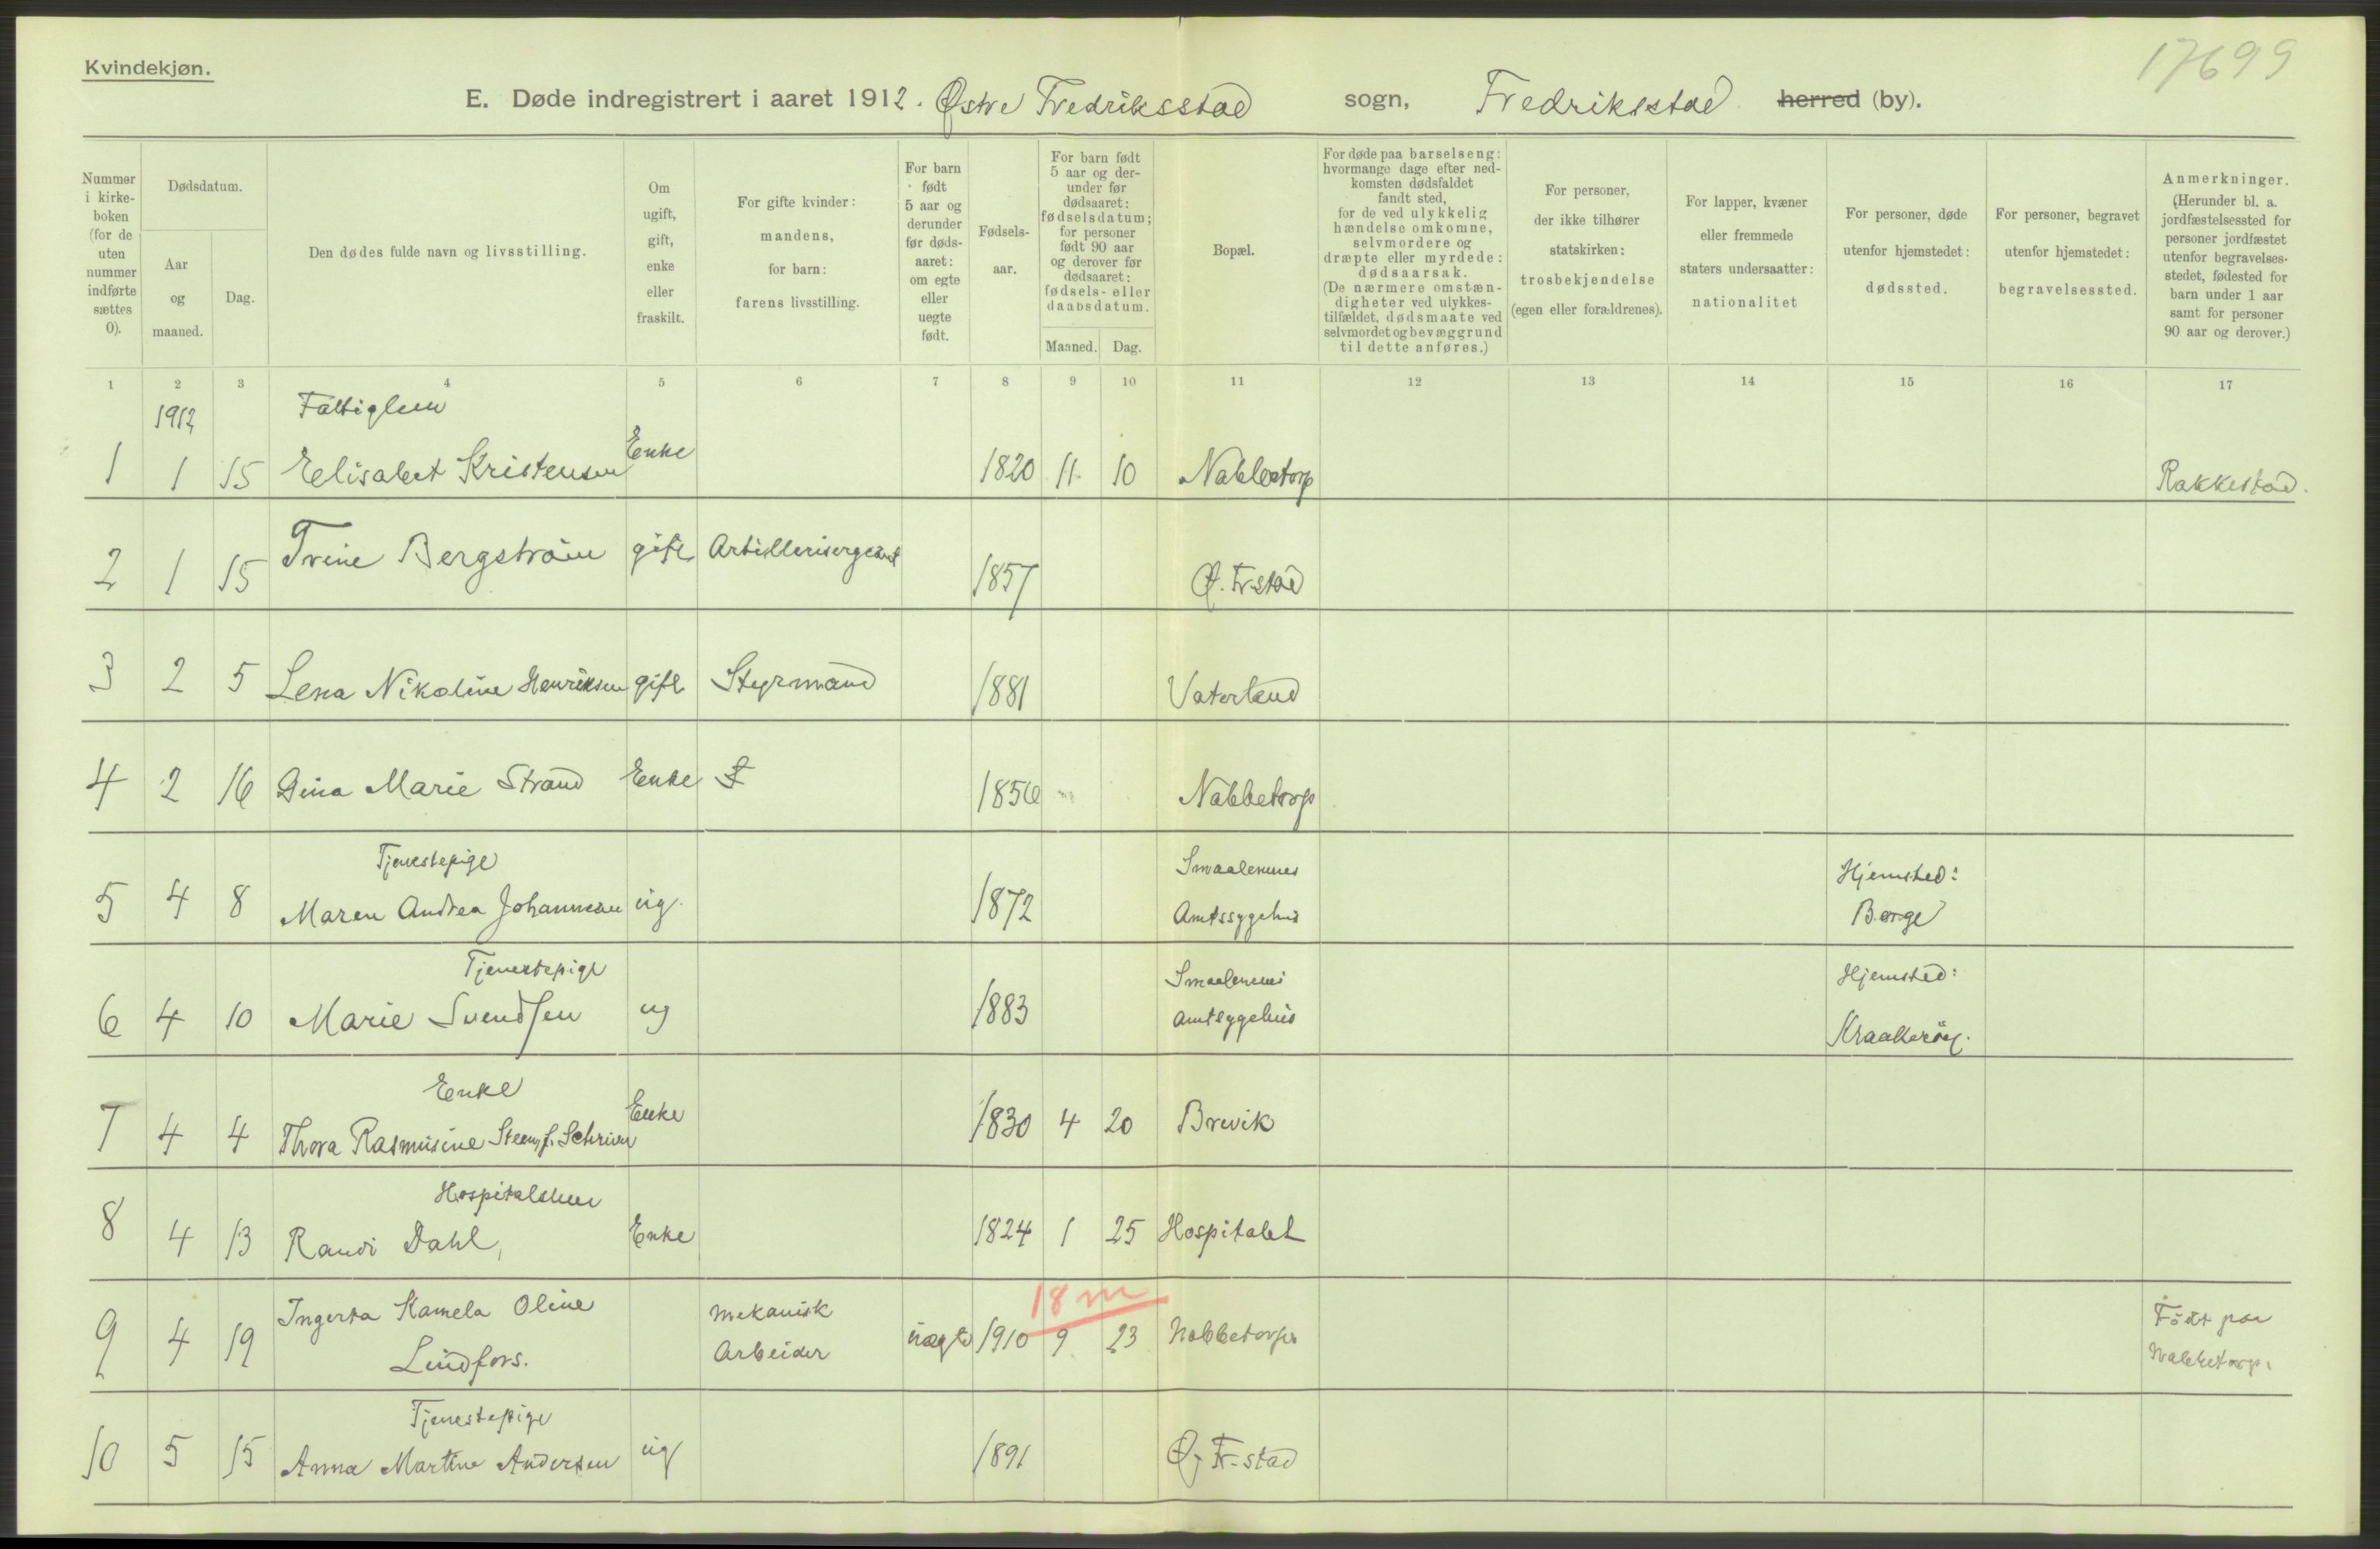 Kvindekjøn.
17699
E. Døde indregistrert i aaret 1912. Østre Fredriksstad sogn, Fredrikstad herred (by).
Nummer i kirke-boken (for de uten nummer indførte sættes 0).
Dødsdatum.
Aar og maaned.
Dag.
Den dødes fulde navn og livsstilling.
Om ugift, gift, enke eller fraskilt.
For gifte kvinder: mandens, for barn: farens livsstilling.
For barn født 5 aar og derunder før døds-aaret: om egte eller uegte født.
Fødsels-aar.
For barn født 5 aar og der-under før dødsaaret: fødselsdatum; for personer født 90 aar og derover før dødsaaret: fødsels- eller daabsdatum.
Maaned. Dag.
Bopæl.
For døde paa barselseng: hvormange dage efter ned-komsten dødsfaldet fandt sted, for de ved ulykkelig hændelse omkomne, selvmordere og dræpte eller myrdede: dødsaarsak. (De nærmere omstæn-digheter ved ulykkes-tilfældet, dødsmaate ved selvmordet og bevæggrund til dette anføres.)
For personer, der ikke tilhører statskirken: trosbekjendelse (egen eller forældrenes).
For lapper, kvæner eller fremmede staters undersaatter: nationalitet
For personer, døde utenfor hjemstedet: dødssted.
For personer, begravet utenfor hjemstedet: begravelsessted.
Anmerkninger. (Herunder bl. a. jordfæstelsessted for personer jordfæstet utenfor begravelses-stedet, fødested for barn under 1 aar samt for personer 90 aar og derover.)
1 2 3 4 5 6 7 8 9 10 11 12 13 14 15 16 17
1912 Fattiglem
1 1 15 Elisabet Kristensen Enke 1820 11 10 Nabbetorp Rakkestad.
2 1 15 Trine Bergstrøm gift Artillerisergeant 1857 Ø. Fr.stad
3 2 5 Lena Nikoline Henriksen gift Styrmand 1881 Vaterland
4 2 16 Gina Marie Strand Enke 1856 Nabbetorp
Tjenestepige Smaalenenes Hjemsted:
5 4 8 Maren Andrea Johannesen ug. 1872 Amtssygehus Borge
Tjenestepige Smaalenenes Hjemsted:
6 4 10 Marie Svendsen ug 1883 Amtsygehus Kraakerøy.
Enke
7 4 4 Thora Rasmusine Steen, f. Schriver Enke 1830 4 20 Brevik
Hospitalslem
8 4 13 Randi Dahl, Enke 1824 1 25 Hospitalet
18 m
Ingerta Kamela Oline mekanisk Født paa
9 4 19 Lindfors. Arbeider uegte 1910 9 23 Nabbetorp Nabbetorp.
Tjenestepige
10 5 15 Anna Martine Andersen ug 1891 Ø. Fr.stad